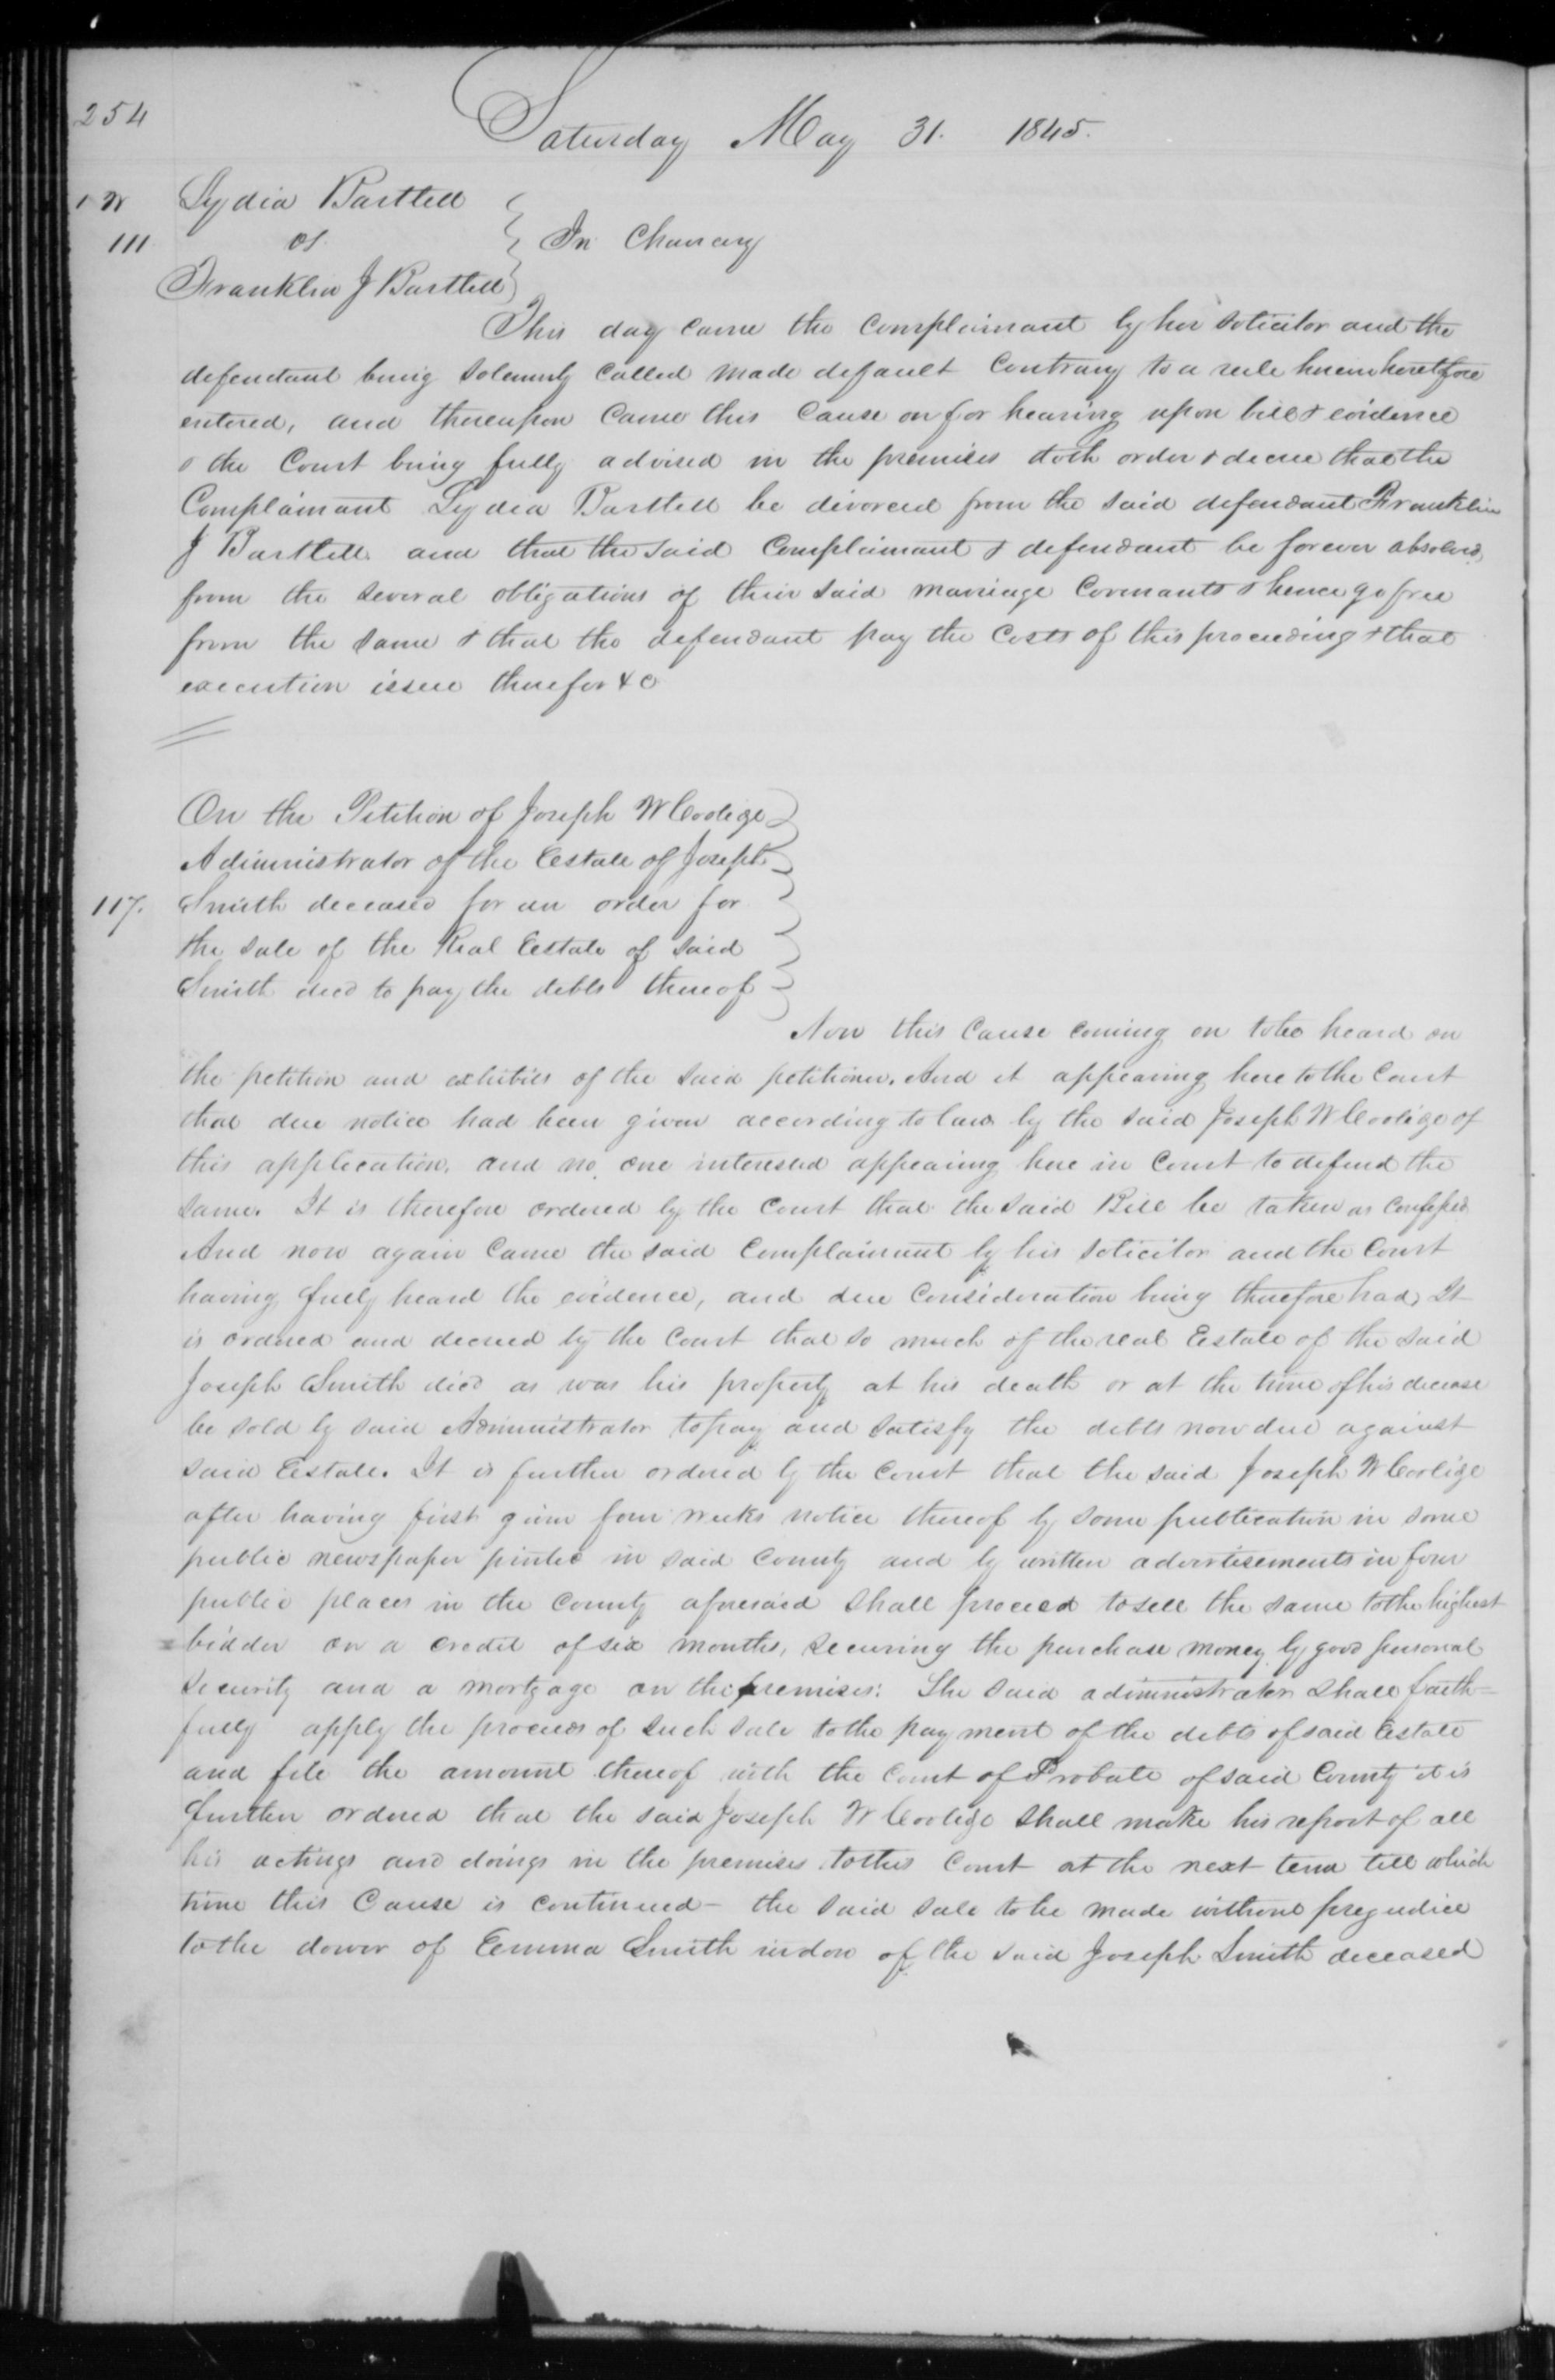 254
Saturday May 31. 1845.
Lydia Bartlett
111 vs. In Chancery
Franklin J Bartlett
This day came the complainant by her solicitor and the
defendant being solemnly called made default contrary to a rule herein heretofore
entered, and thereupon came this cause on for hearing upon bill & evidence
& the Court being fully advised in the premises doth order & decree that the
Complainant Lydia Bartlett be divorced from the said defendant Franklin
J Bartlett and that the said Complainant & defendant be forever absolved
from the several obligations of their said marriage Covenants & hence go free
from the same & that the defendant pay the Costs of this proceeding & that
execution issue therefor &c
On the Petition of Joseph W Coolige
Administrator of the Estate of Joseph
117. Smith deceased for an order for
the sale of the Real Estate of said
Smith decd to pay the debts thereof
Now this Cause coming on to be heard on
the petition and exhibits of the said petitioner. And it appearing here to the Court
that due notice had been given according to law by the said Joseph W Coolige of
this application, and no one interested appearing here in Court to defend the
same. It is therefore ordered by the Court that the said Bill be taken as confessed
And now again came the said Complainant by his solicitor and the Court
having fully heard the evidence, and due Consideration being therefore had, It
is ordered and decreed by the Court that so much of the real Estate of the said
Joseph Smith decd as was his property at his death or at the time of his decease
be sold by said Administrator to pay and satisfy the debts now due against
said Estate. It is further ordered by the Court that the said Joseph W Coolige
after having first given four weeks notice thereof by some publication in some
public newspaper printed in said County and by written advertisements in four
public places in the County aforesaid shall proceed to sell the same to the highest
bidder on a credit of six months, securing the purchase money by good personal
security and a mortgage on the premises: The said administrator shall faith-
fully apply the proceeds of such sale to the payment of the debts of said Estate
and file the amount thereof with the Court of Probate of said County it is
further ordered that the said Joseph W Coolige shall make his report of all
his actings and doings in the premises to this Court at the next term till which
time this Cause is continued - the said sale to be made without prejudice
to the dower of Emma Smith widow of the said Joseph Smith deceased